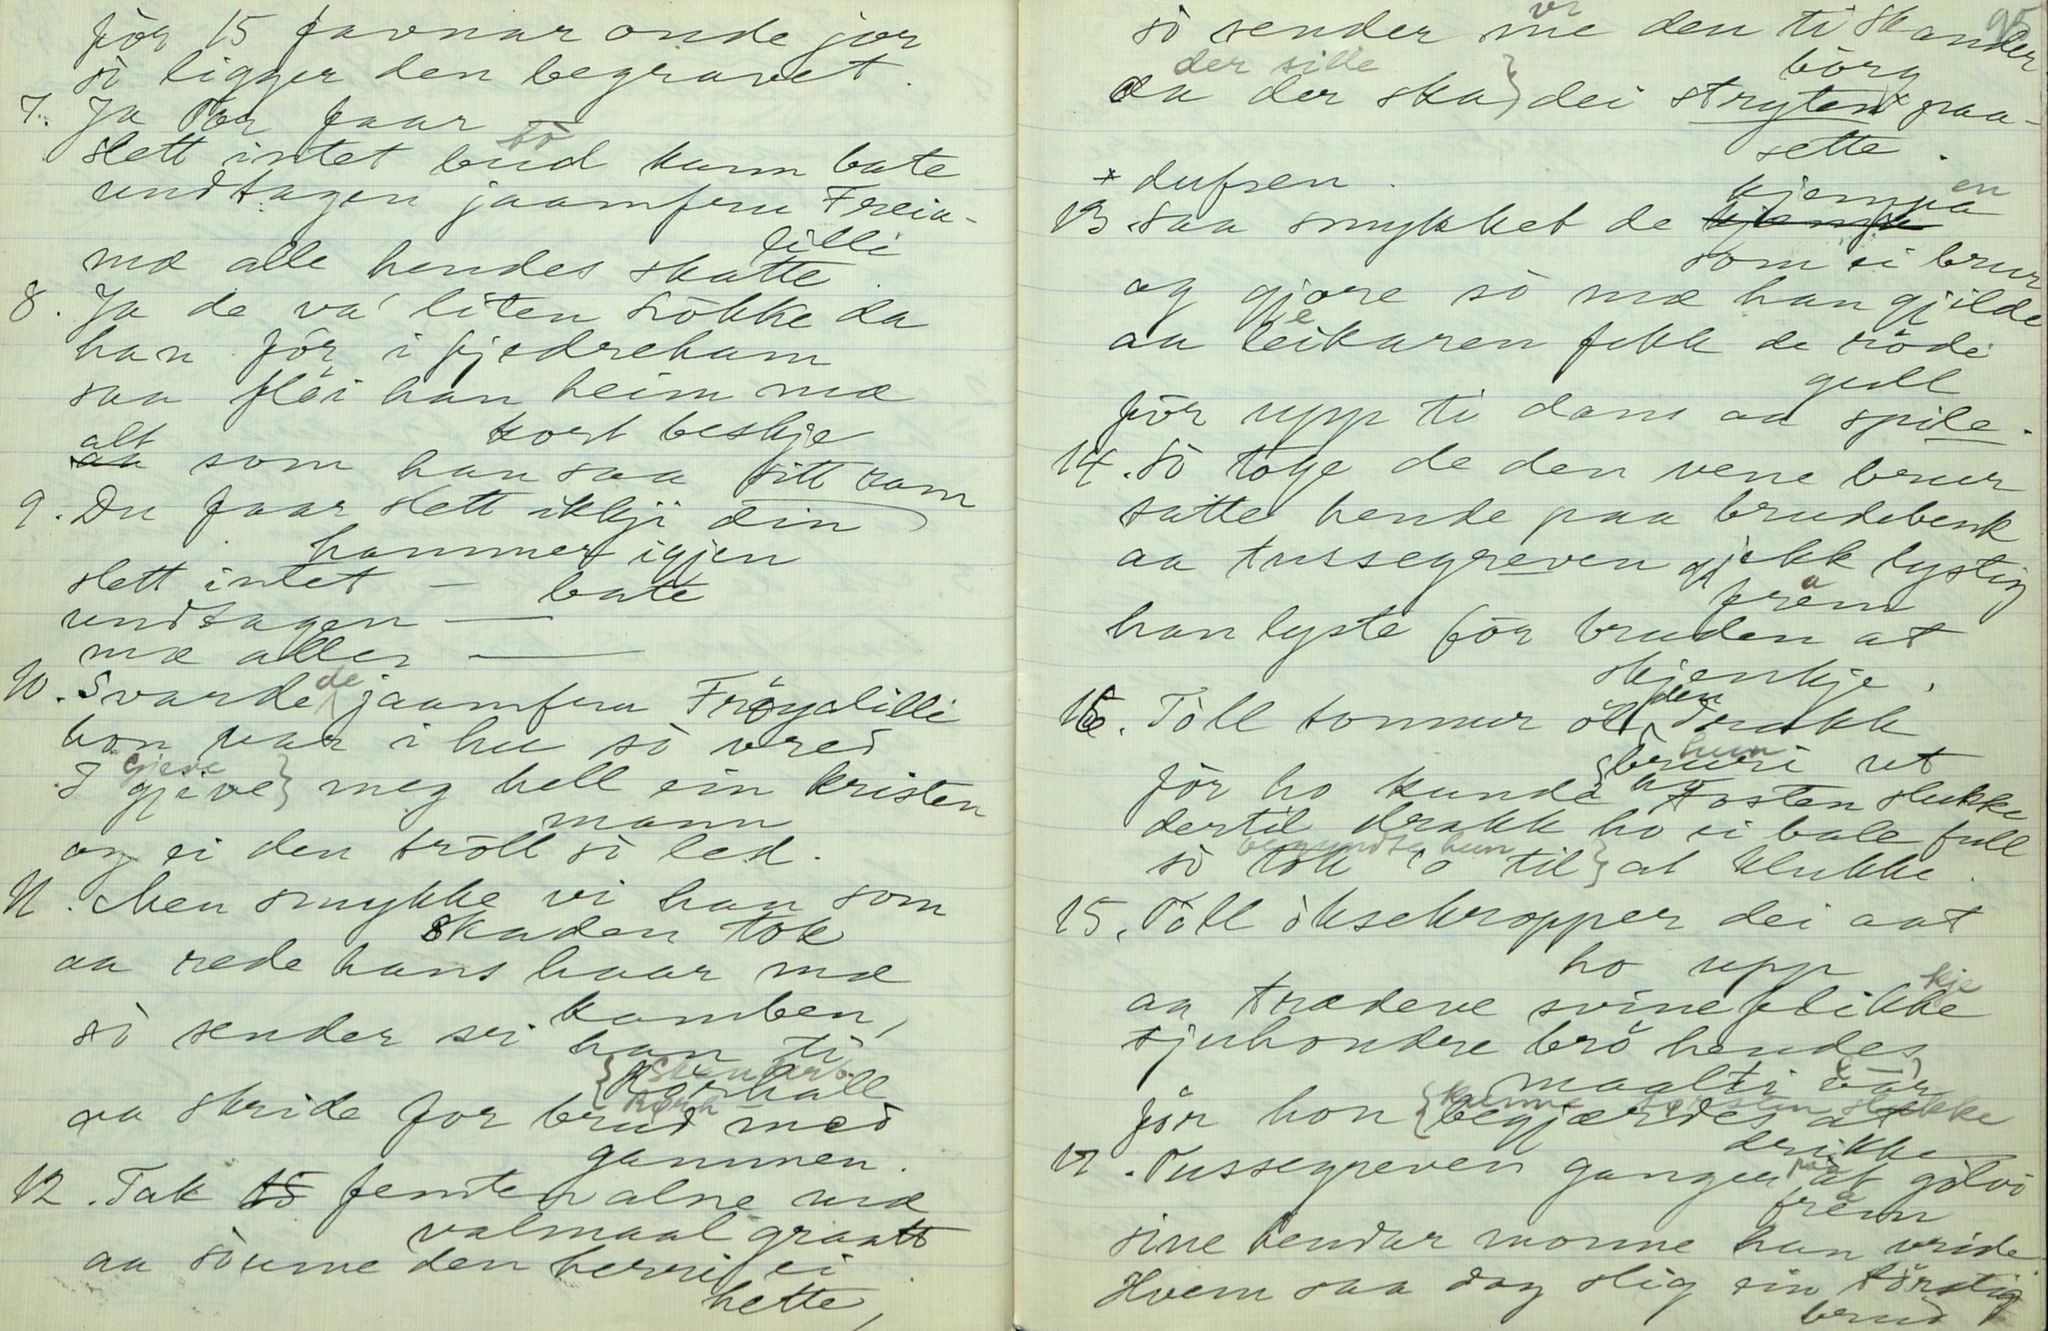 för 15 favnar onde jor
så ligger den begravet.
7. Ja Tor faar
slett intet bud kann bate
bö
undtagen jaamfru Freia-
lilli
mæ alle hendes skatte.
8. Ja de va' liten Lökke da
han för i fjedreham
saa flöi han heim mæ
kort beskje
alt som han saa sitt ram
9. Du faar slett ikkji din
hammer igjen
slett intet — bate
undtagen —
mæ aller —
10. Svarde de jaamfru Fröyalilli
hon var i hu så vred
I gjive } meg hell ein kristen
gjeve
mann
og ei den tröll så led.
11. Men smykke vi han som
skaden tok
aa rede hans haar mæ
kamben,
så sender vi han ti
aa skride for brud med
gammen.
12. Tak femten alne
valmaal graatt
aa såume den herri ei
hette,
95
vi
så sender me den ti Skander-
börg
der sille
da der ska } dei stryten* paa-
sette.
* dufsen.
13. Saa smykket de kjempa
en
som ei brur
og gjore så mæ han gjilde
aa leikaren fekk de röde
e
gull
för upp ti dans aa spile.
14. Så toge de den vene brur
satte hende paa brudebenk
aa tussegreven gjekk lystig
fram
han lyste för bruden at
skjenkje.
16. Töll tonnur öl den drakk
brura ut
hun
för ho kunde tosten slukke
dertil drakk ho ei bale full
begyndte hun
så tok 'o til } at klukke.
15. Töll öksekropper dei aat
ho upp
aa trædeve svineflikke
kje
sjuhondre brö hendes
maalti var,
för hon { begjærdes at
kunne törsten slukke
drikke
17. Tussegreven gangen at gölvi
paa
fram
sine hendar monne han vride
Hvem saa dog slig ein törstig
brud